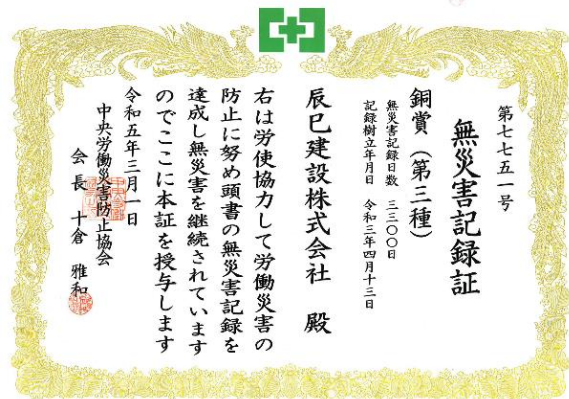 第七七五一号
無災害記録証
銅賞（第三種）
無災害記録日数 三三〇〇日
記録樹立年月日 令和三年四月十三日
辰巳建設株式会社 殿
右は労使協力して労働災害の
防止に努め頭書の無災害記録を
達成し無災害を継続されています
のでここに本証を授与します
令和五年三月一日
中央労働災害防止協会
会長 十倉 雅和